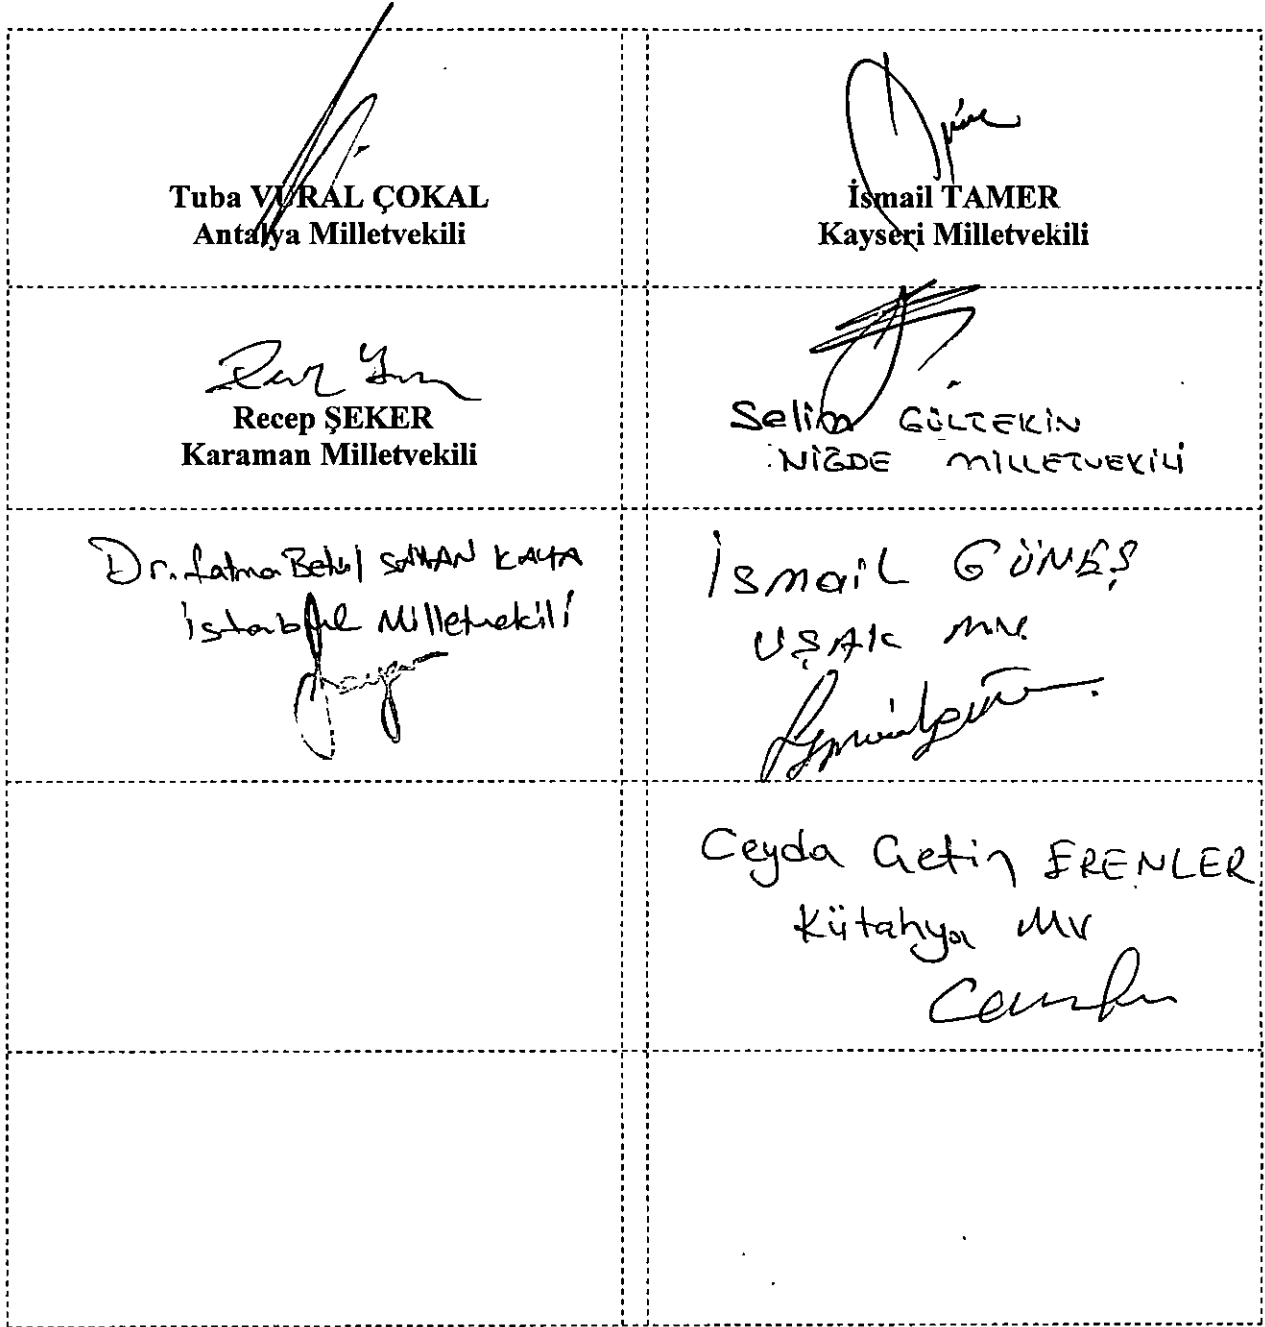 Tuba VURAL ÇOKAL
Antalya Milletvekili
İsmail TAMER
Kayseri Milletvekili
Recep ŞEKER
Karaman Milletvekili
Selim GÜLTEKİN
NİĞDE MİLLETVEKİLİ
Dr. Fatma Betül SAYAN KAYA
İstanbul Milletvekili
İsmail GÜNEŞ
UŞAK M.V.
Ceyda Çetin ERENLER
Kütahya MV